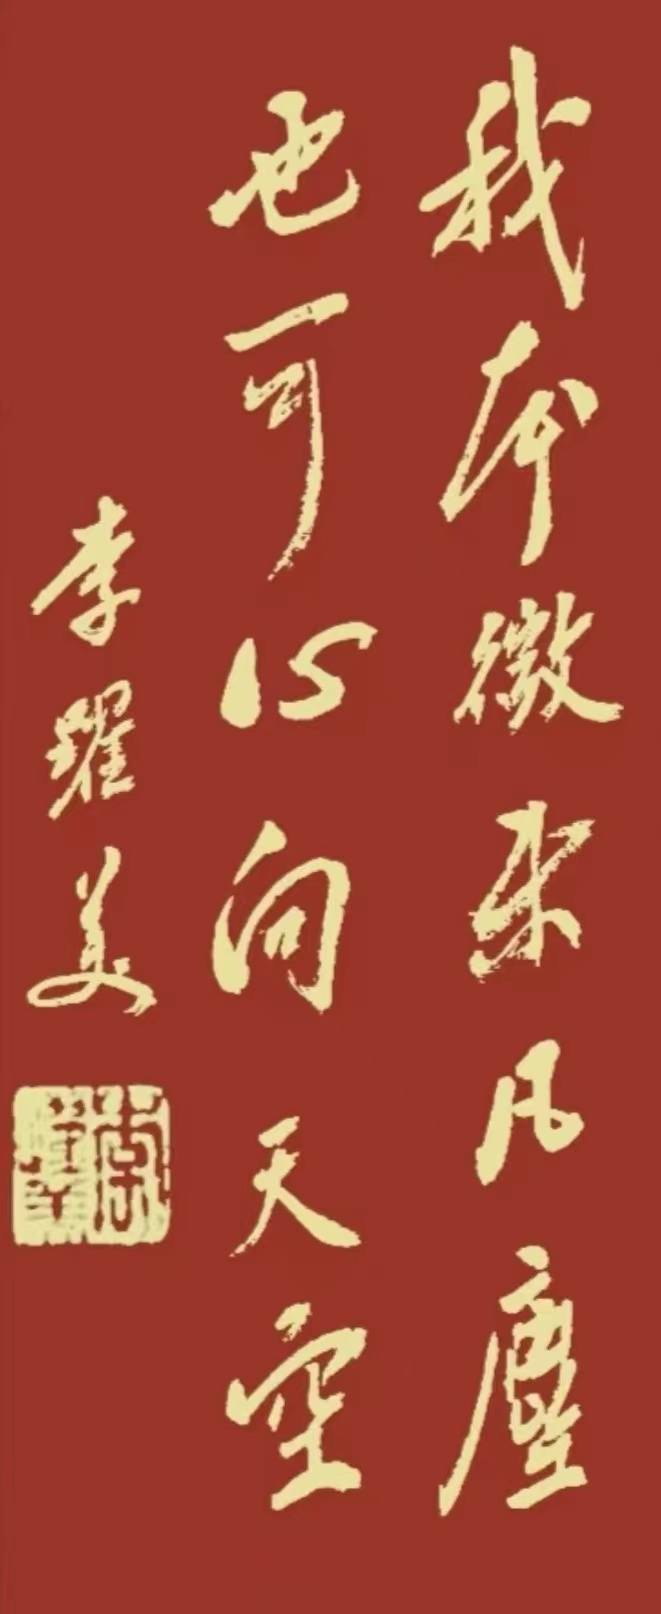 我本微末凡塵
也可心向天空
李躍美